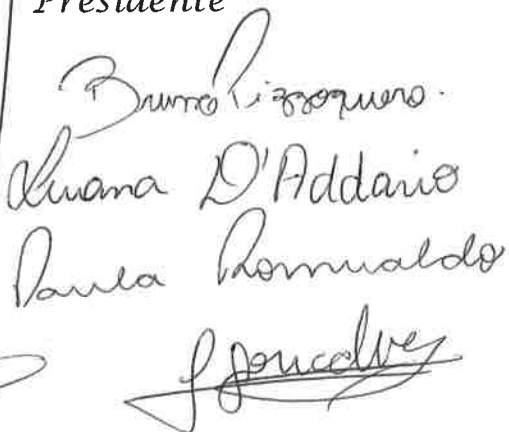 Presidente
Bruno Pizzoquero.
Luana D'Addario
Paula Romualdo
Gonçalves